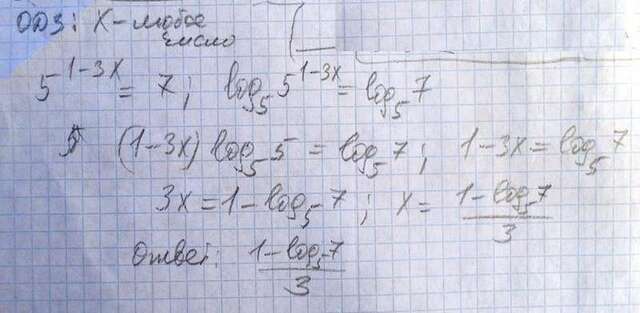 ОДЗ: X - любое
число
5^(1-3x) = 7; log₅ 5^(1-3x) = log₅ 7
(1-3x) log₅ 5 = log₅ 7; 1-3x = log₅ 7
3x = 1 - log₅ 7; x = (1 - log₅ 7)/3
Ответ: (1 - log₅ 7)/3